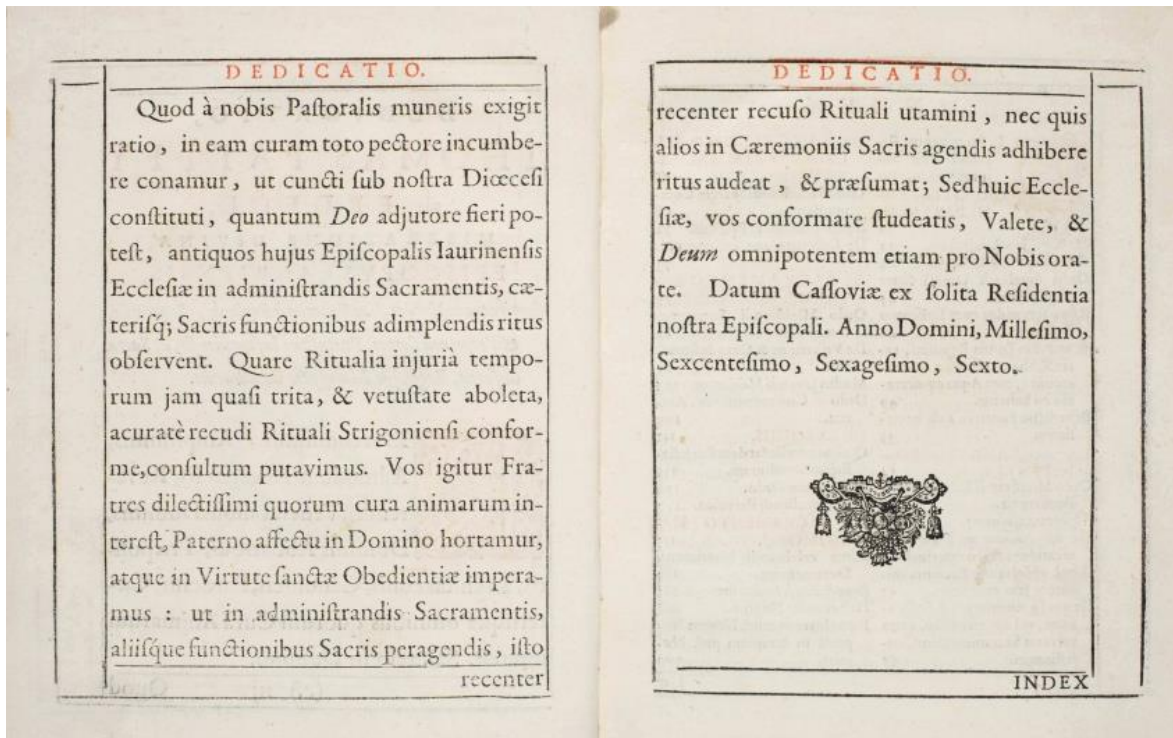 DEDICATIO.
Quod à nobis Paſtoralis muneris exigit
ratio, in eam curam toto pectore incumbe-
re conamur, ut cuncti ſub noſtra Diœceſi
conſtituti, quantum Deo adjutore fieri po-
teſt, antiquos hujus Epiſcopalis Iaurinenſis
Eccleſiæ in adminiſtrandis Sacramentis, cæ-
teriſq́; Sacris functionibus adimplendis ritus
obſervent. Quare Ritualia injurià tempo-
rum jam quaſi trita, & vetuſtate aboleta,
acuratè recudi Rituali Strigonienſi confor-
me, conſultum putavimus. Vos igitur Fra-
tres dilectiſſimi quorum cura animarum in-
tereſt, Paterno affectu in Domino hortamur,
atque in Virtute ſanctæ Obedientiæ impera-
mus : ut in adminiſtrandis Sacramentis,
aliiſque functionibus Sacris peragendis, iſto
recenter
DEDICATIO.
recenter recuſo Rituali utamini, nec quis
alios in Cæremoniis Sacris agendis adhibere
ritus audeat, & præſumat; Sed huic Eccle-
ſiæ, vos conformare ſtudeatis, Valete, &
Deum omnipotentem etiam pro Nobis ora-
te. Datum Caſſoviæ ex ſolita Reſidentia
noſtra Epiſcopali. Anno Domini, Milleſimo,
Sexcenteſimo, Sexageſimo, Sexto.
INDEX